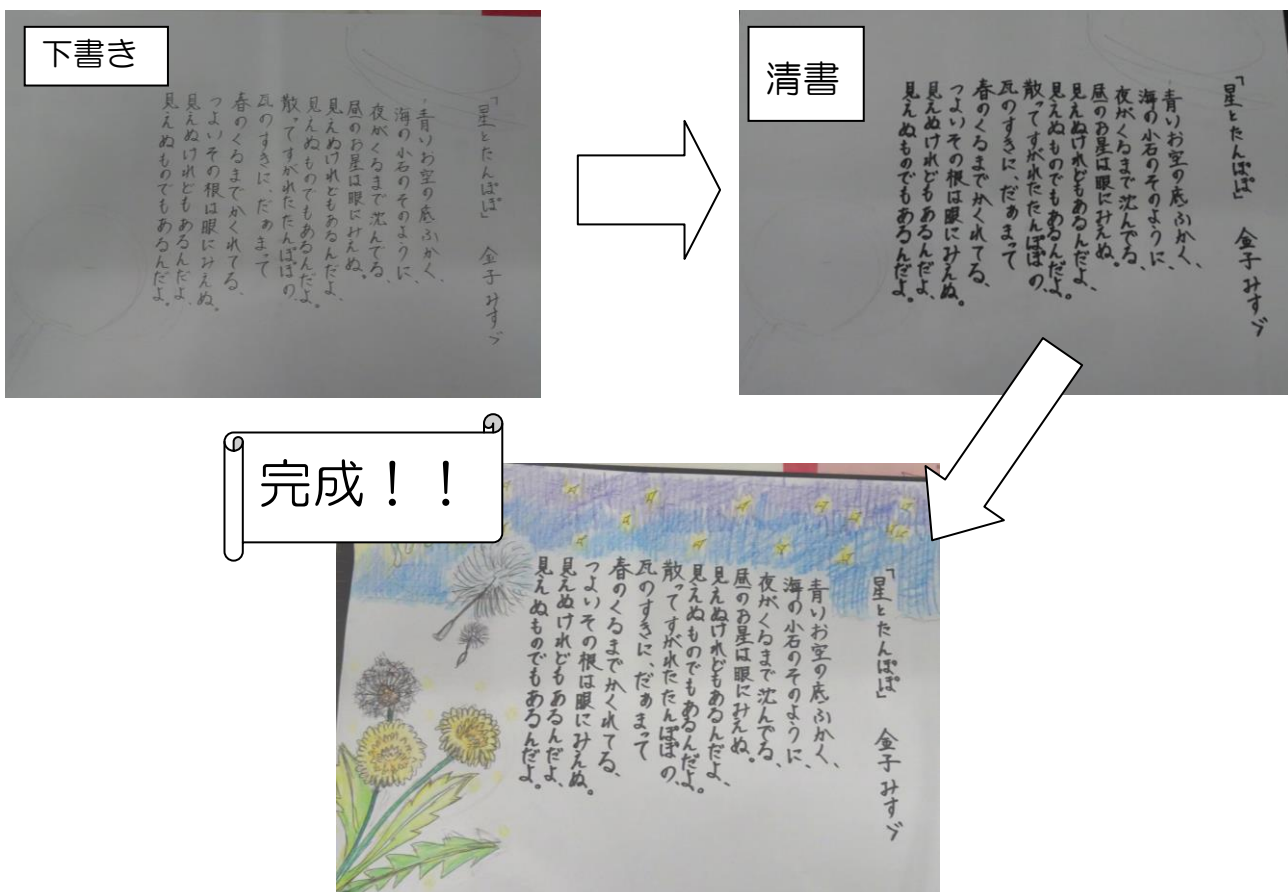 下書き
「星とたんぽぽ」 金子みすゞ
青いお空の底ふかく、
海の小石のそのように、
夜がくるまで沈んでる、
昼のお星は眼にみえぬ。
見えぬけれどもあるんだよ、
見えぬものでもあるんだよ。
散ってすがれたたんぽぽの、
瓦のすきに、だぁまって
春のくるまでかくれてる、
つよいその根は眼にみえぬ。
見えぬけれどもあるんだよ、
見えぬものでもあるんだよ。
清書
「星とたんぽぽ」 金子みすゞ
青いお空の底ふかく、
海の小石のそのように、
夜がくるまで沈んでる、
昼のお星は眼にみえぬ。
見えぬけれどもあるんだよ、
見えぬものでもあるんだよ。
散ってすがれたたんぽぽの、
瓦のすきに、だぁまって
春のくるまでかくれてる、
つよいその根は眼にみえぬ。
見えぬけれどもあるんだよ、
見えぬものでもあるんだよ。
完成！！
「星とたんぽぽ」 金子みすゞ
青いお空の底ふかく、
海の小石のそのように、
夜がくるまで沈んでる、
昼のお星は眼にみえぬ。
見えぬけれどもあるんだよ、
見えぬものでもあるんだよ。
散ってすがれたたんぽぽの、
瓦のすきに、だぁまって
春のくるまでかくれてる、
つよいその根は眼にみえぬ。
見えぬけれどもあるんだよ、
見えぬものでもあるんだよ。